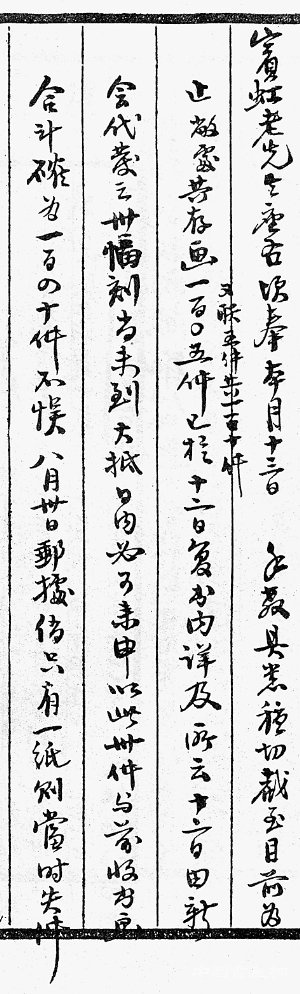 賓虹老先生座右頃奉本月十三日　手教具悉種切截至目前為
止敝處共存画一百〇五件已於十二日复书内详及所云十六日由新
又联五件共一百十件
会代发之卅幅则尚未到大抵日内必可来申以此卅件与前收书画
合计確为一百四十件不悞八月卅日郵據倘只有一纸则當时失